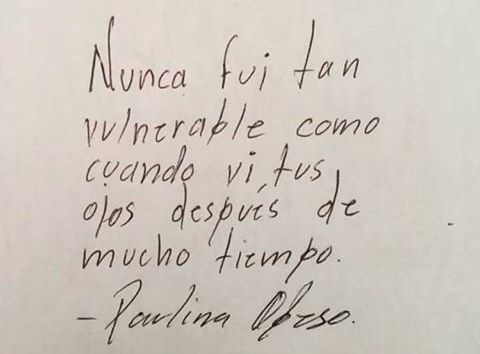 Nunca fui tan
vulnerable como
cuando vi tus
ojos después de
mucho tiempo.
- Paulina Obeso.